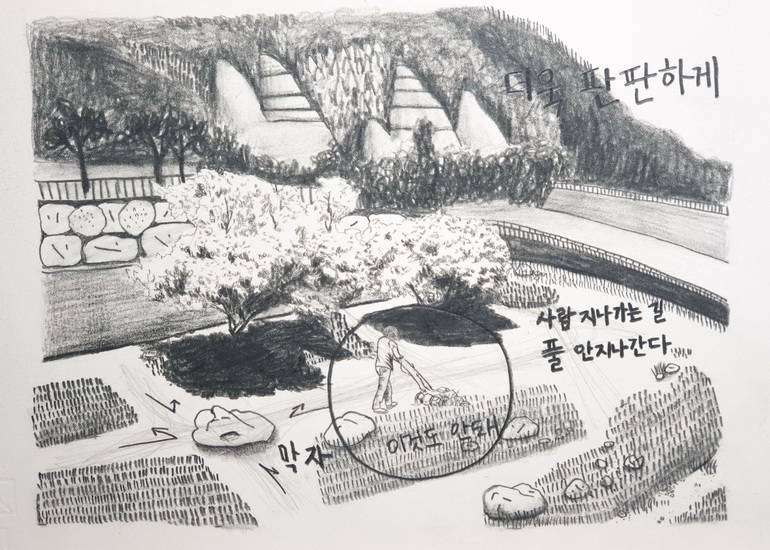 더욱 판판하게
사람 지나가는 길
풀 안지나간다
이것도 안돼
막자